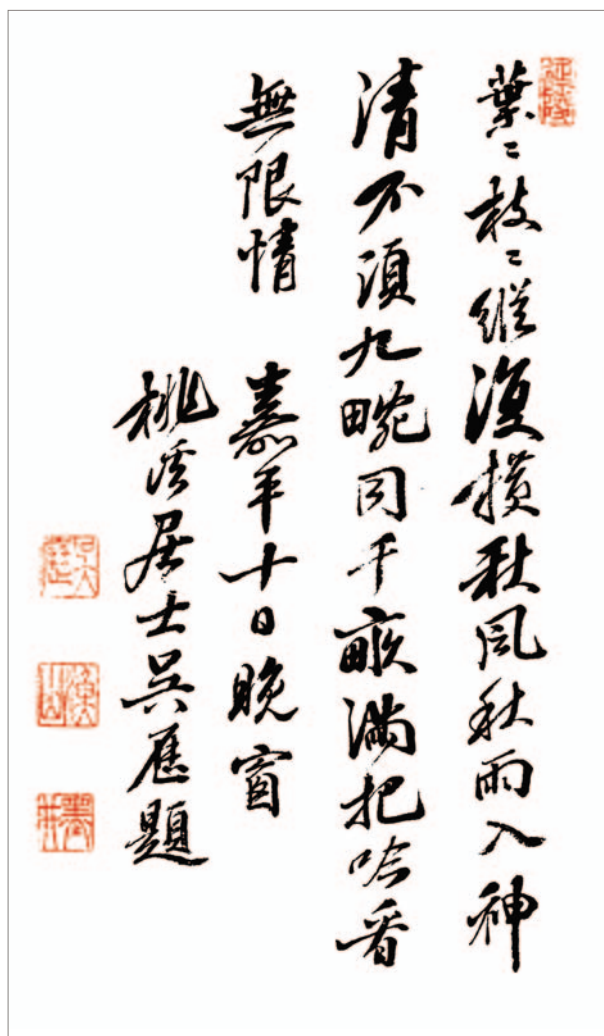 葉〻枝〻縱復橫秋風秋雨入神
清不須九畹同千畝滿把吟香
無限情　嘉平十日晚窗
桃溪居士吳應題